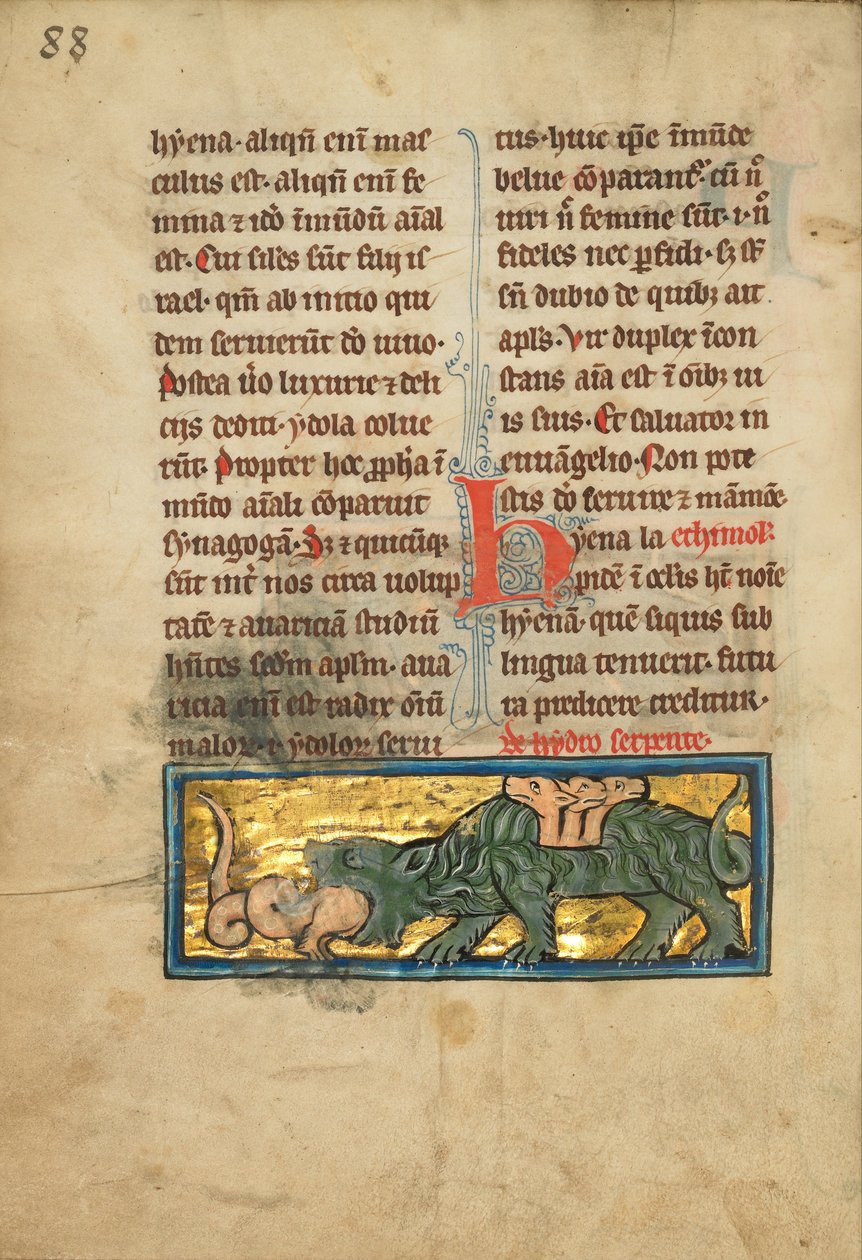 88
hẏena· aliqñ eni̅ maſ
culus est· aliqñ eni̅ fe
mina ⁊ idō i̅mūdū aīal
est· Cui siłes sūt filij iſ
rael· qm̄ ab initio qui
dem seruierūt dō uiuo·
Postea ũo luxurie ⁊ deli
cijs dediti· ẏdola colue
rūt· Propter hoc ꝓph̄a ī
mūdo aīali cōparuit
sẏnagogā· Sꝫ ⁊ quicūqꝫ
sūt int̄ nos circa uolup
tatē ⁊ auariciā studiū
hn̄tes scd̄m apłm· aua
ricia eni̅ est radix oīū
maloꝝ· ⁊ ẏdoloꝝ serui
tus· huic ip̄e īmūde
belue cōparantᷣ· cū nͦ
uiri nͦ femine sūt· ·i· nͦ
fideles nec ꝑfidi· sꝫ st̄
sn̄ dubio de quibꝫ ait
apłs· Vir duplex īcon
stans aīa est ī oībꝫ ui
is suis· Et saluator in
euuāgelio· Non pote
stis dō seruire ⁊ māmōe·
Hẏena la ethimoł·
pidē ī oc̄lis ht̄ noīe
hẏenā· quē siquis sub
lingua tenuerit· futu
ra predicere creditur·
de hẏdro serpente·